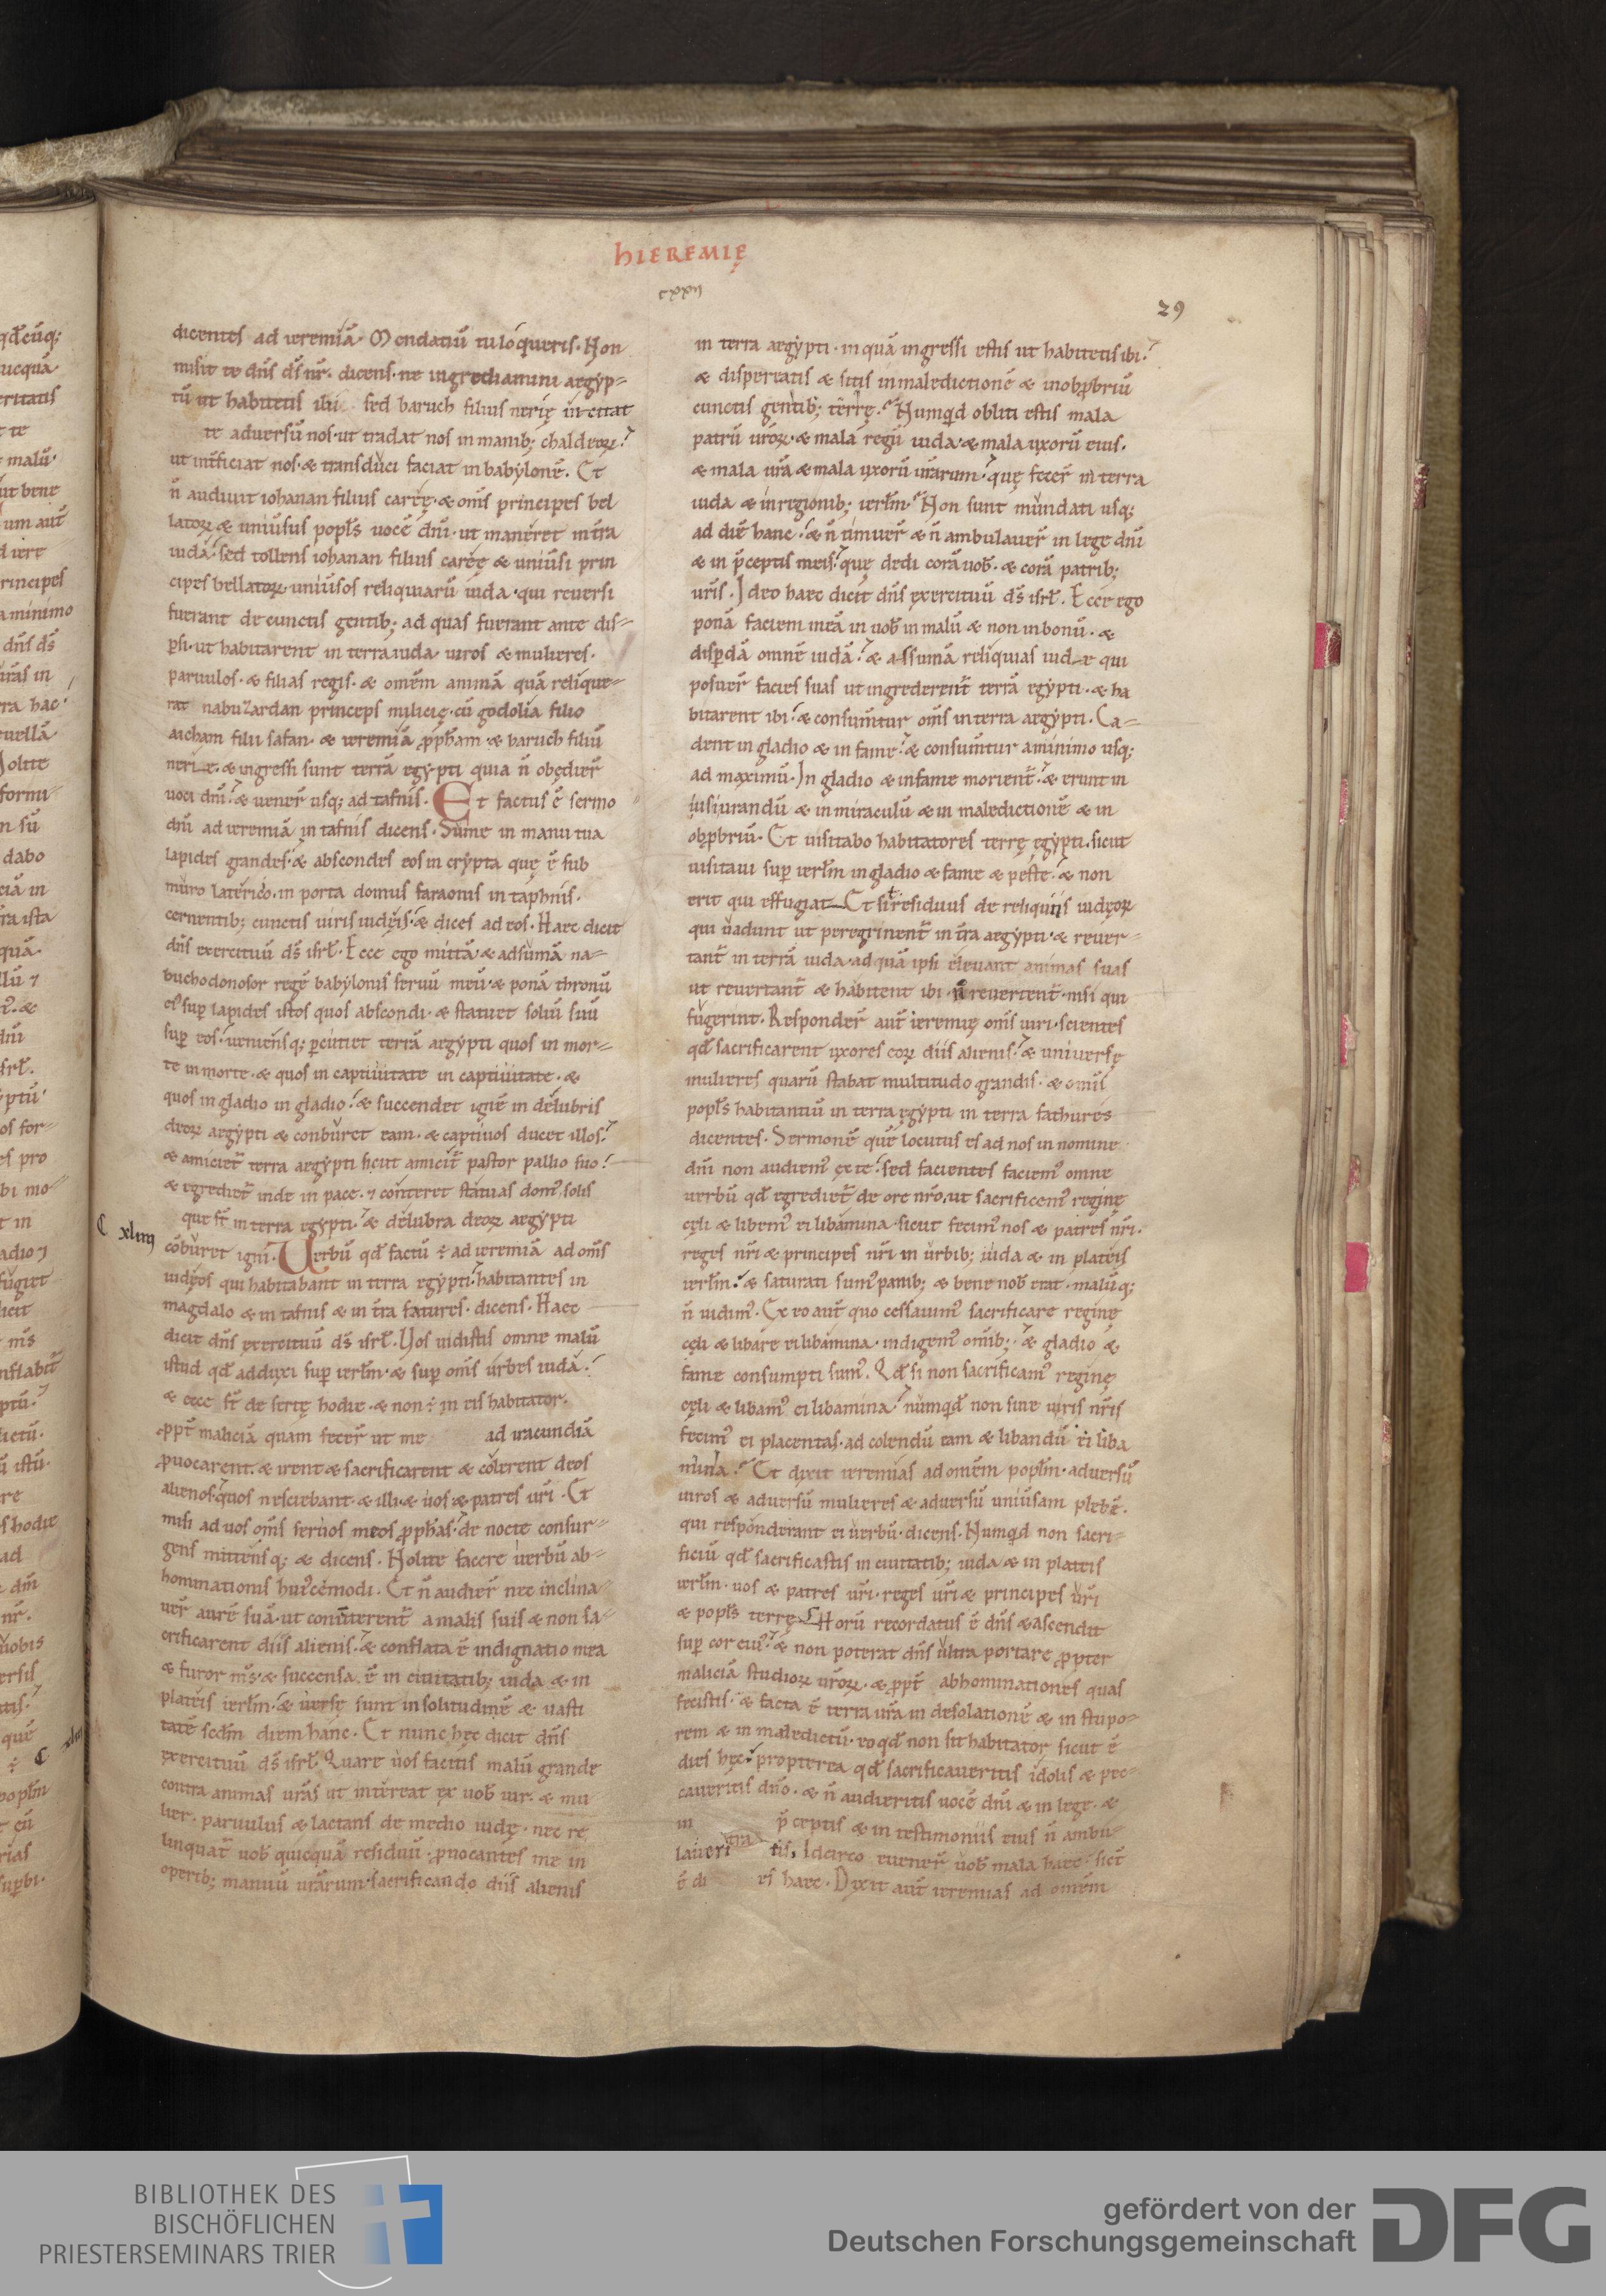 HIEREMIĘ
cxxii
29
dicentes ad ieremiā. Mendatiū tu lóqueris. Non
misit te dn̄s dS̄ nr̄. dicens. ne ingrediamini aegyp=
tū ut habitetis ibi sed baruch filius nerię incitat
te adversū nos. ut tradat nos in manib; chaldeoꝝ.
ut int̄ficiat nos. & transduci faciat in babylonē. Et
n̄ audivit iohanan filius careę. & om̄s principes bel
latoꝝ & univ̄sus popl̄s vocē dn̄i. ut maneret in t̄ra
iuda. sed tollens iohanan filius careę & univ̄si prin
cipes bellatoꝝ. univ̄sos reliquiarū iuda. qui reversi
fuerant de cunctis gentib; ad quas fuerant ante dis=
p̄si. ut habitarent in terra iuda. viros & mulieres.
parvulos. & filias regis. & omēm animā quā relique=
rat nabuzardan princeps milicię. cū godolia filio
aicham filii safan. & ieremiā ꝓph̄am. & baruch filiū
nerię. & ingressi sunt terrā egypti quia n̄ obędier̄
voci dn̄i. & vener̄ usq; ad tafnis. Et factus ē sermo
dn̄i ad ieremiā in tafnis dicens. Sume in manu tua
lapides grandes. & abscondes eos in crypta quę ē sub
muro latérico. in porta domus faraonis in taphnis.
cernentib; cunctis viris iudęis. & dices ad eos. Haec dicit
dn̄s exercituū dS̄ isrl̄. Ecce ego mittā & adsumā na=
buchodonosor regē babylonis servū meū. & ponā thronū
ei' sup̄ lapides istos quos abscondi. & statuet soliū suū
sup̄ eos. veniensq; p̄cutiet terrā aegypti quos in mor=
te in morte. & quos in captivitate in captivitate. &
quos in gladio in gladio. & succendet ignē in délubris
deoꝝ aegypti & conburet eam. & captivos ducet illos.
& amiciet̄ terra aegypti sicut amicit̄ pastor pallio suo.
& egrediet̄ inde in pace. ⁊ conteret statuas dom' solis
que st̄ in terra egypti. & délubra deoꝝ aegypti
C xliiij
cōburet igni. Verbū qd̄ factū ē ad ieremiā ad om̄s
iudęos qui habitabant in terra egypti. habitantes in
magdalo & in tafnis & in t̄ra fatures. dicens. Haec
dicit dn̄s exercituū dS̄ isrl̄. Vos vidistis omne malū
istud qd̄ adduxi sup̄ ierl̄m. & sup̄ om̄s urbes iuda.
& ecce st̄ de sertę hodie. & non ē in eis habitator.
ꝓpt̄ maliciā quam fecer̄ ut me ad iracundiā
ꝓvocarent. & irent & sacrificarent & colerent deos
alienos. quos nesciebant. & illi & vos & patres vr̄i. Et
misi ad vos om̄s servos meos ꝓph̄as. de nocte consur=
gens mittensq; & dicens. Nolite facere verbū ab=
hominationis hui'cemodi. Et n̄ audier̄ nec inclina=
ver̄ aurē suā. ut conv̄terent̄ a malis suis & non sa=
crificarent diis alienis. & conflata ē indignatio mea
& furor ms̄. & succensa ē in civitatib; iuda & in
plateis ierl̄m. & versę sunt in solitudinē & vasti
tatē scdm̄ diem hanc. Et nunc hęc dicit dn̄s
exercituū dS̄ isrl̄. Quare vos facitis malū grande
contra animas vrās ut intereat ex vob̄ vir. & mu
lier. parvulus & lactans de medio iudę. nec re
linquat̄ vob̄ quicquā residuū. ꝓvocantes me in
operib; manuū vrārum. sacrificando diis alienis
in terra aegypti. in quā ingressi estis ut habitetis ibi.
& dispereatis & sitis in maledictionē & in obꝓbriū
cunctis gentib; tērrę. Numqd obliti estis mala
patrū vrōꝝ. & mala regū iuda. & mala uxorū eius.
& mala vrā & mala uxorū vrārum. quę fecer̄ in terra
iuda & in regionib; ierl̄m. Non sunt mundati usq;
ad diē hanc. & n̄ timuer̄ & n̄ ambulaver̄ in lege dn̄i
& in p̄ceptis meis. quę dedi corā vob̄. & corā patrib;
vr̄is. Ideo haec dicit dn̄s exercituū dS̄ isrl̄. Ecce ego
ponā faciem meā in vob̄ in malū & non in bonū. &
disp̄dā omnē iudā. & assumā reliquias iudae qui
posuer̄ facies suas ut ingrederent̄ terrā egypti. & ha
bitarent ibi. & consumt̄ur om̄s in terra aegypti. Ca=
dent in gladio & in fame. & consumt̄ur a minimo usq;
ad maximū. In gladio & in fame morient̄. & erunt in
iusiurandū & in miraculū & in maledictionē & in
obꝓbriū. Et visitabo habitatores terrę egypti. sicut
visitavi sup̄ ierl̄m in gladio & fame & peste. & non
erit qui effugiat Et sit residuus de reliquiis iudęoꝝ
qui vadunt ut peregrinent̄ in t̄ra aegypti. & rever=
tant̄ in terrā iuda. ad quā ipsi elevant animas suas
ut revertant̄ & habitent ibi. n̄ revertent̄. nisi qui
fugerint. Responder̄ aut̄ ieremię om̄s viri. scientes
qd̄ sacrificarent uxores eoꝝ diis alienis. & universę
mulieres quarū stabat multitudo grandis. & omīs
popl̄s habitantiū in terra egypti in terra fathures
dicentes. Sermonē quē locutus es ad nos in nomine
dn̄i non audiem' ex te. sed facientes faciem' omne
verbū qd̄ egrediet̄ de ore nrō. ut sacrificem' reginę
cęli & libem' ei libamina. sicut fecim' nos & patres nr̄i.
reges nr̄i & principes nr̄i in urbib; iuda & in plateis
ierl̄m. & saturati sum' panib; & bene nob̄ erat. malūq;
n̄ vidim'. Ex eo aut̄ quo cessavim' sacrificare reginę
cęli & libare ei libamina. indigem' omīb; & gladio &
fame consumpti sum'. Qd̄ si non sacrificam' reginę
cęli & libam' ei libamina. numqd̄ non sine viris nr̄is
fecim' ei placentas. ad colendū eam & libandū ei liba
mina. Et dixit ieremias ad omēm popl̄m. adversū
viros & adversū mulieres & adversū univ̄sam plebē.
qui responderant ei verbū. dicens. Numqd non sacri=
ficiū qd̄ sacrificastis in civitatib; iuda & in plateis
ierl̄m. vos & patres vr̄i. reges vr̄i & principes vr̄i
& popl̄s terrę Horū recordatus ē dn̄s & ascendit
sup̄ cor eiu'. & non poterat dn̄s ultra portare ꝓpter
maliciā studioꝝ vrōꝝ. & ꝓpt̄ abhominationes quas
fecistis. & facta ē terra vrā in desolationē & in stupo=
rem & in maledictū. eo qd̄ non sit habitator sicut ē
dies hęc. propterea qd̄ sacrificaveritis idolis & pec=
caveritis dn̄o. & n̄ audieritis vocē dn̄i & in lege. &
in p̄ceptis & in testimoniis eius n̄ ambu=
laveri tis. Idcirco evener̄ vob̄ mala haec. sict̄
ē di es haec. Dixit aut̄ ieremias ad omēm
BIBLIOTHEK DES
BISCHÖFLICHEN
PRIESTERSEMINARS TRIER
gefördert von der
Deutschen Forschungsgemeinschaft
DFG